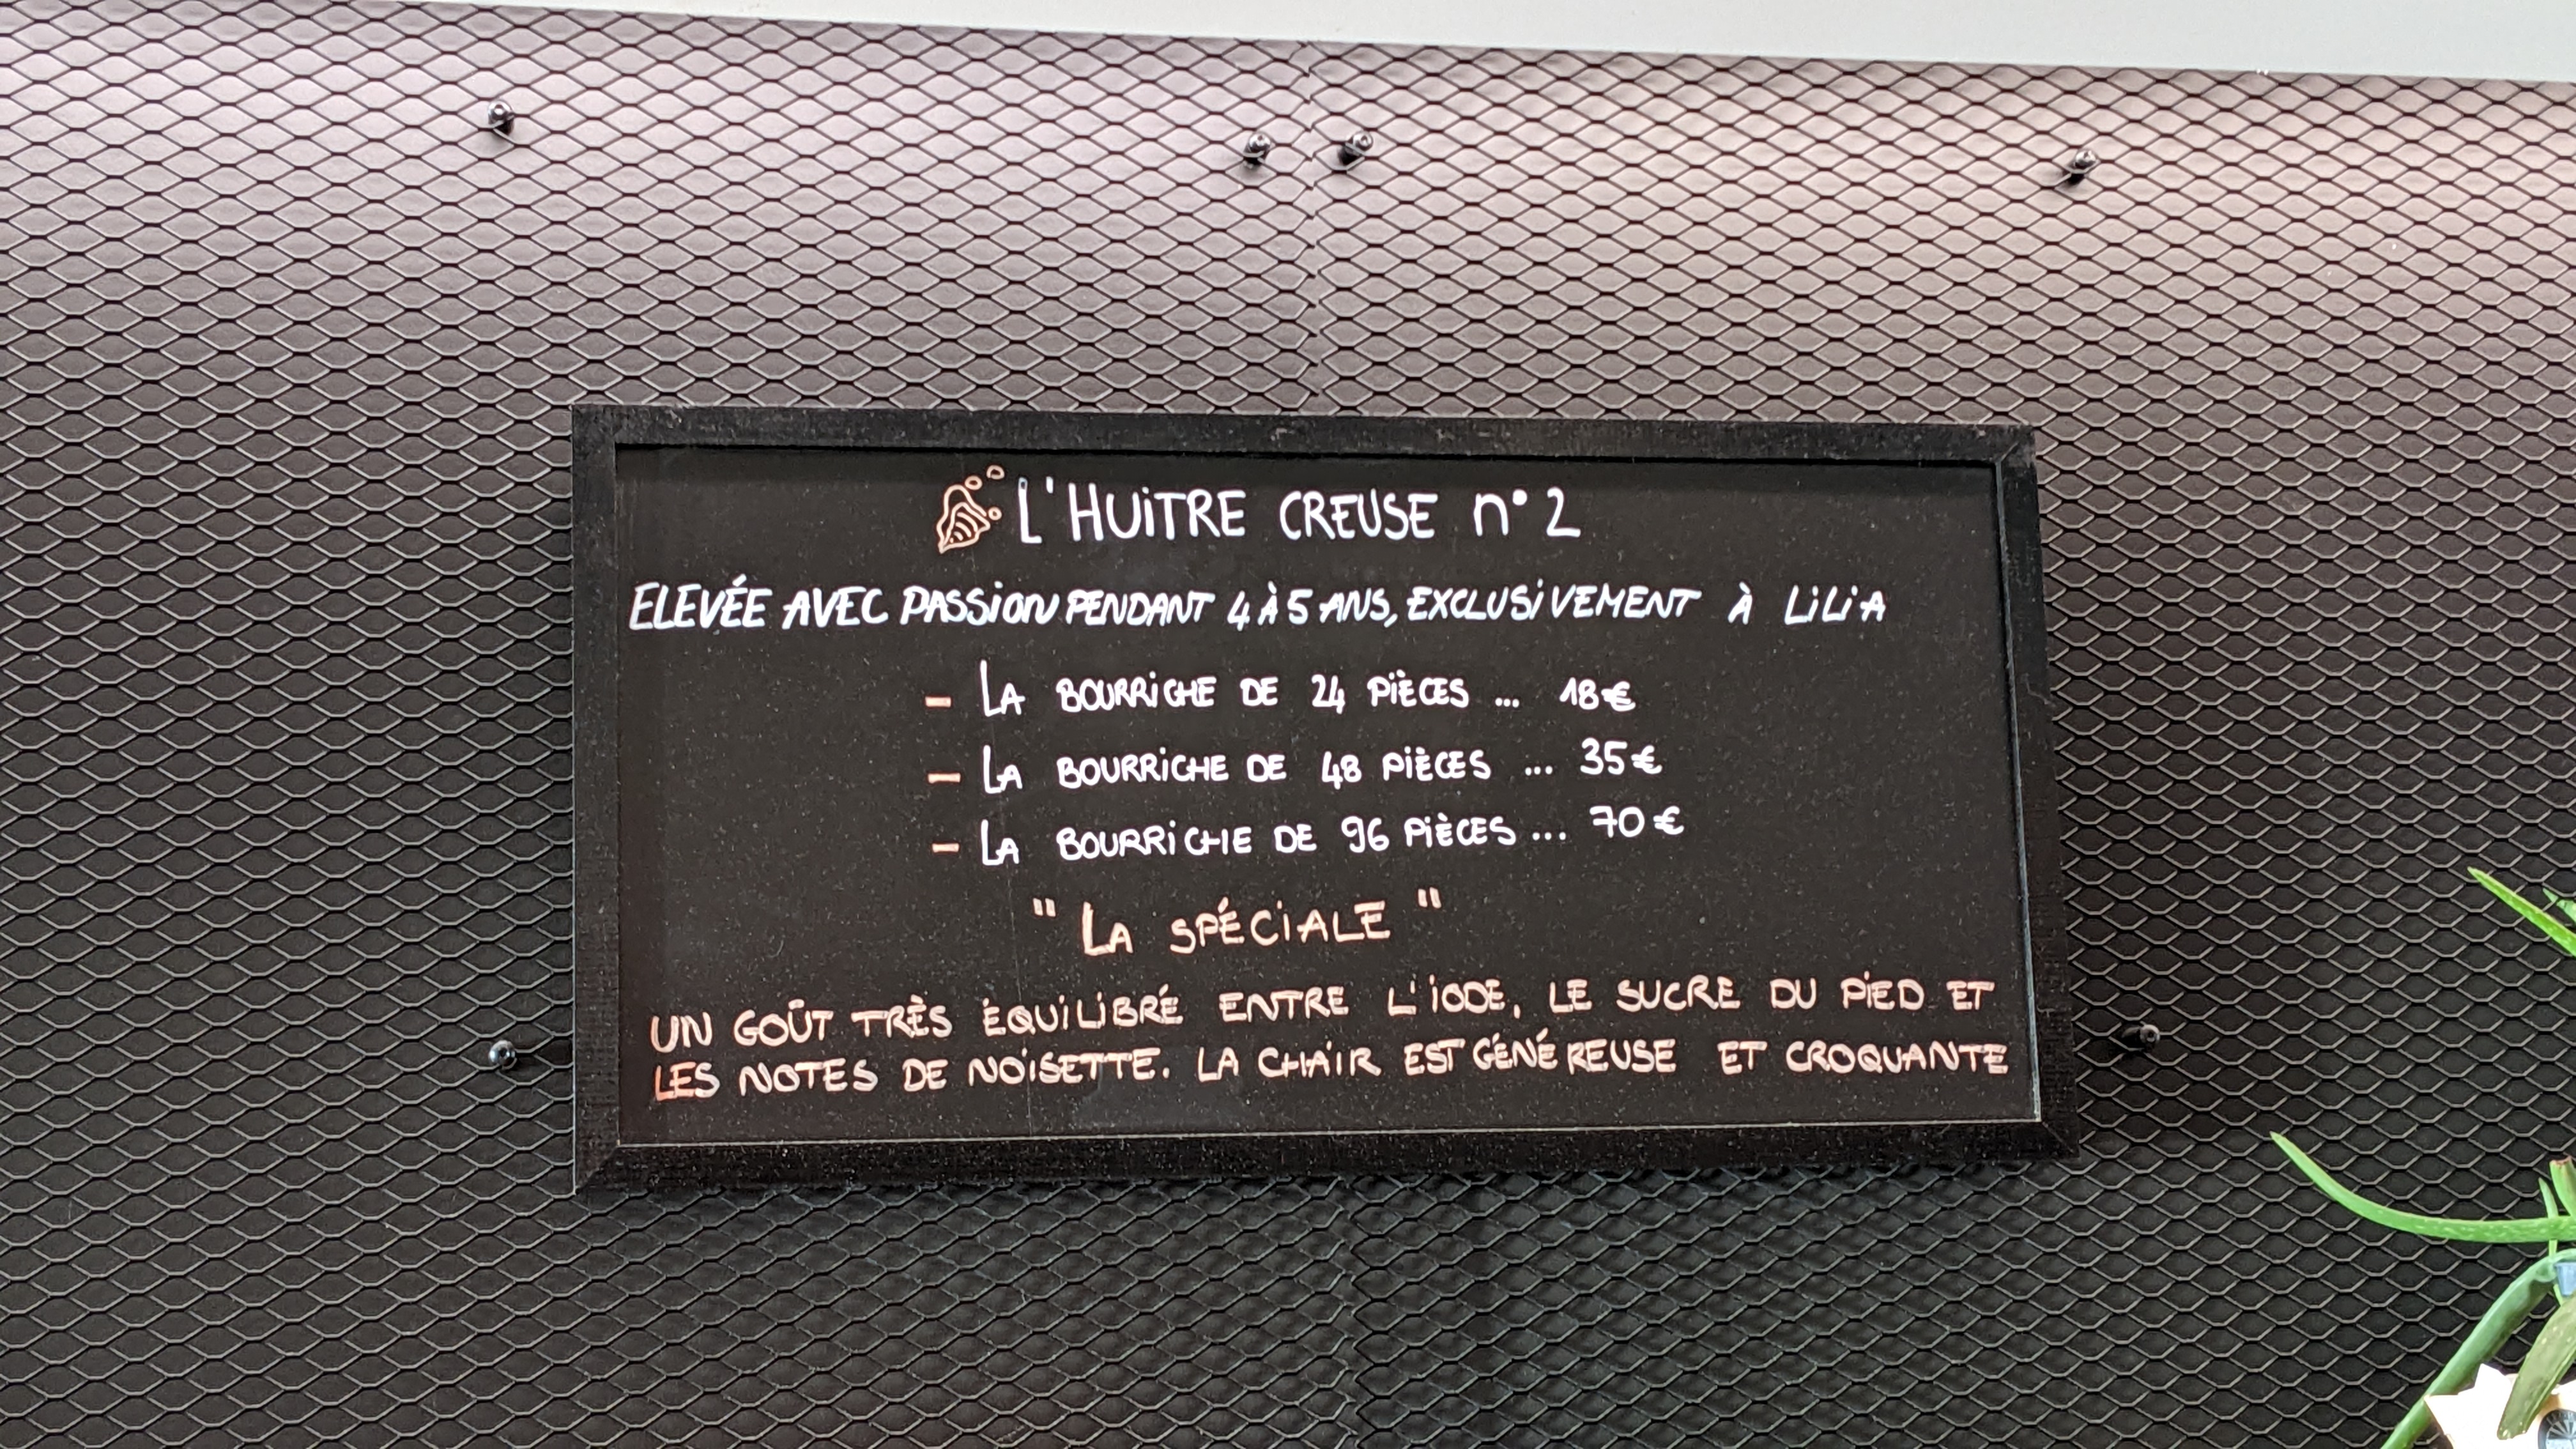 L'HUITRE CREUSE n°2
ELEVÉE AVEC PASSION PENDANT 4 À 5 ANS, EXCLUSIVEMENT À LILIA
- LA BOURRICHE DE 24 PIÈCES ... 18€
- LA BOURRICHE DE 48 PIÈCES ... 35€
- LA BOURRICHE DE 96 PIÈCES ... 70€
" LA SPÉCIALE "
UN GOÛT TRÈS ÉQUILIBRÉ ENTRE L'IODE, LE SUCRE DU PIED ET
LES NOTES DE NOISETTE. LA CHAIR EST GÉNÉREUSE ET CROQUANTE